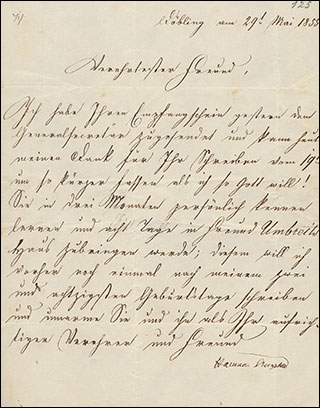 11
123
Döbling am 29t Mai 1855
Verehrtester Freund,
Ich habe Ihren Empfangschein gestern dem
Generalsecretär zugesendet und kann heut
meinen Dank für Ihr Schreiben vom 19t
um so kürzer fassen als ich so Gott will!
Sie in drei Monaten persönlich kennen
lernen und acht Tage in Freund Umbreits
Haus zubringen werde; diesem will ich
vorher noch einmal nach meinem zwei
und achtzigsten Geburtstage schreiben
und umarme Sie und ihn als Ihr aufrich-
tiger Verehrer und Freund
Hammer-Purgstall